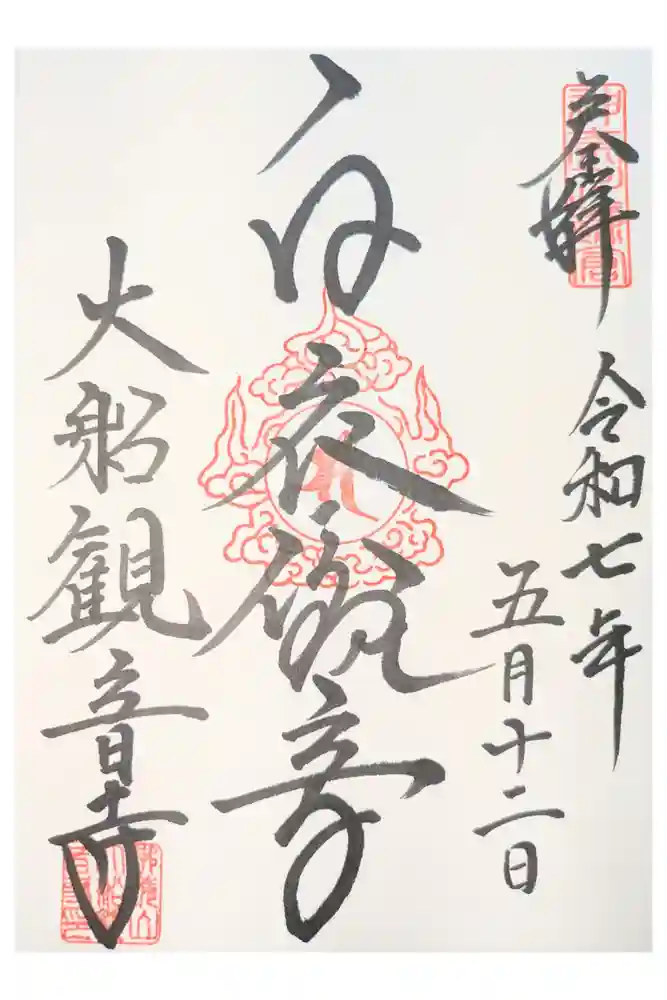 奉拝
令和七年
五月十二日
白衣観音
大船観音寺